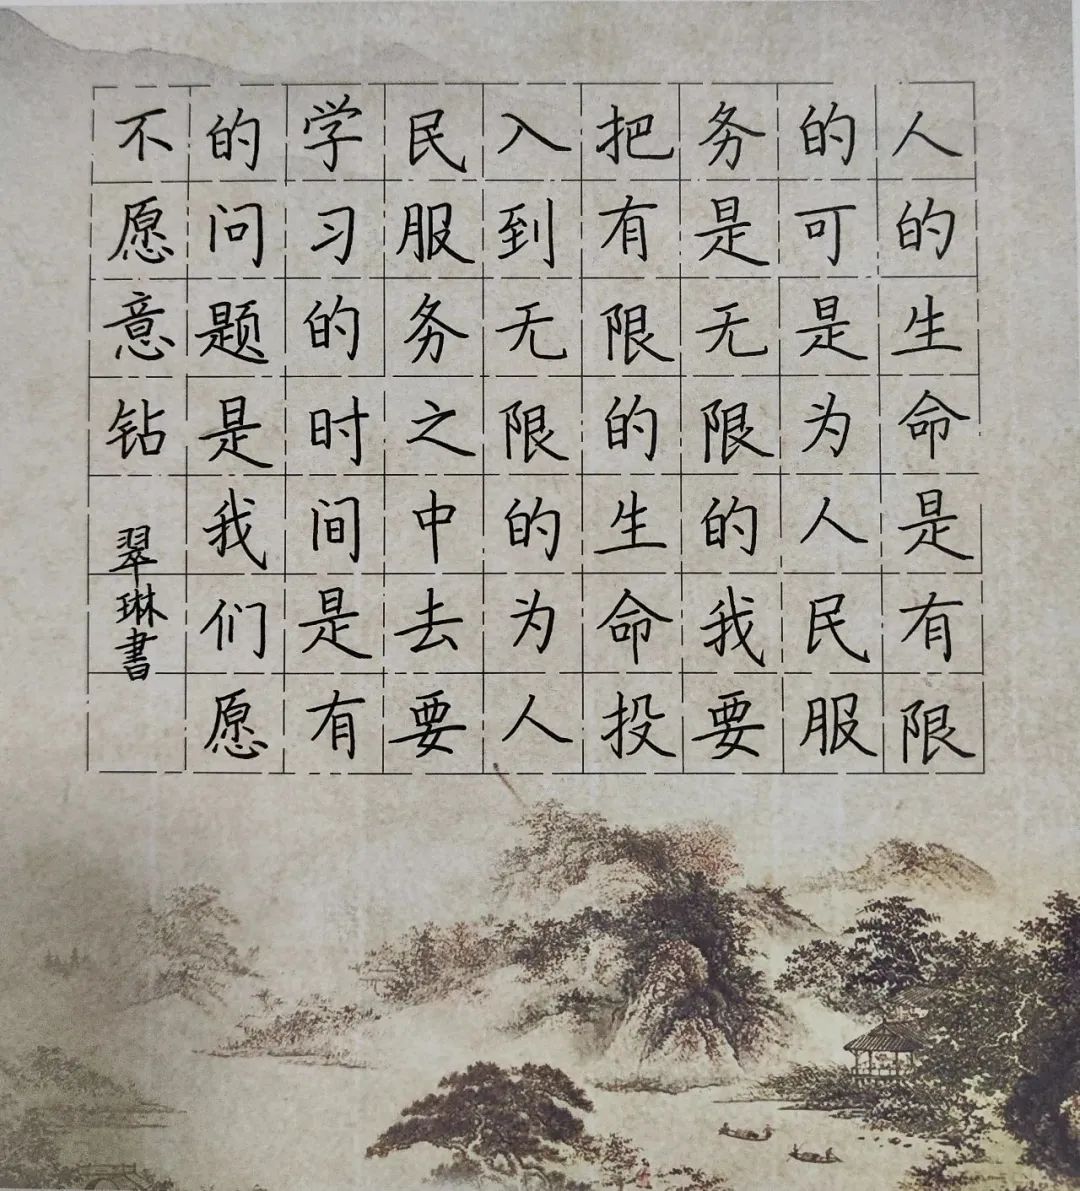 人的生命是有限
的可是为人民服
务是无限的我要
把有限的生命投
入到无限的为人
民服务之中去要
学习的时间是有
的问题是我们愿
不愿意钻
翠琳書